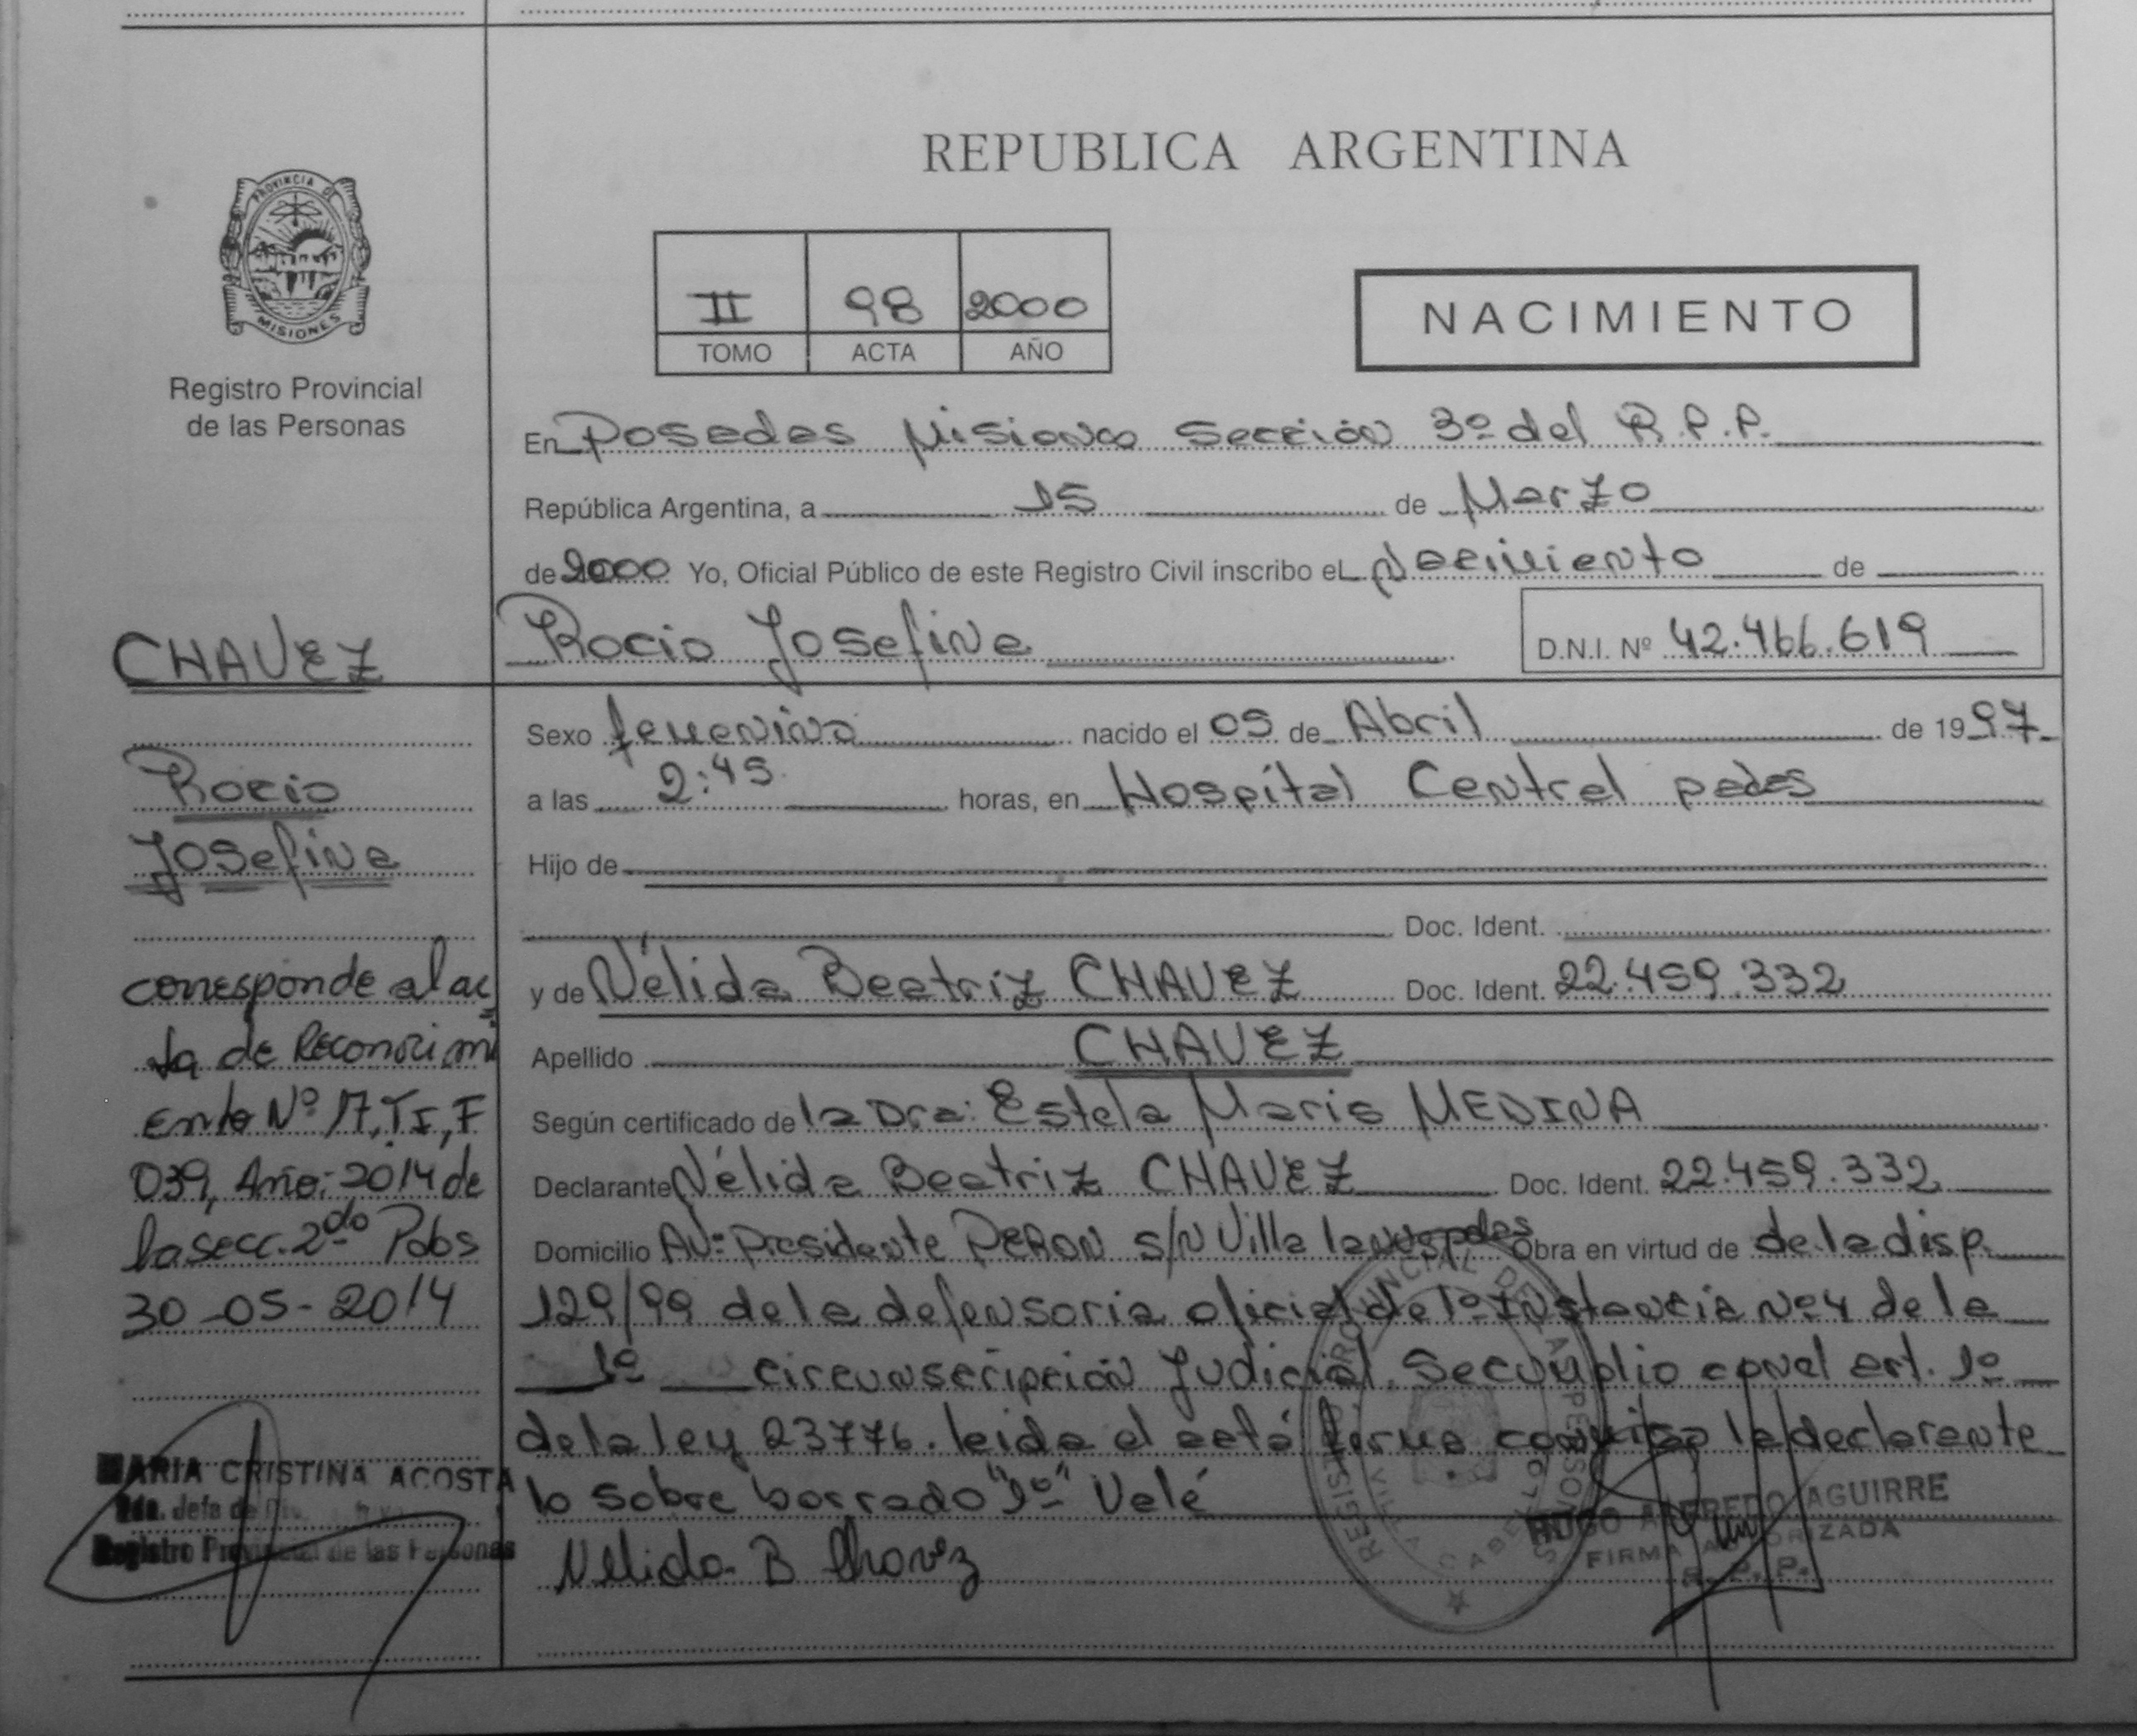 REPUBLICA ARGENTINA
PROVINCIA DE
MISIONES
Registro Provincial
de las Personas
II 98 2000
TOMO ACTA AÑO
NACIMIENTO
En Posadas Misiones Sección 3º del R.P.P.
República Argentina, a 15 de Marzo
de 2000 Yo, Oficial Público de este Registro Civil inscribo el Nacimiento de
Rocio Josefina D.N.I. Nº 42.466.619
CHAVEZ
Rocio
Josefina
corresponde al ac
ta de Reconocimi
ento Nº 17, TI, F
039, Año: 2014 de
la secc. 2do Pdas
30-05-2014
MARIA CRISTINA ACOSTA
2da. Jefa de Div.
Registro Provincial de las Personas
Sexo femenino nacido el 05 de Abril de 1997
a las 2:45 horas, en Hospital Central pdas
Hijo de
Doc. Ident.
y de Nélida Beatriz CHAVEZ Doc. Ident. 22.459.332
Apellido CHAVEZ
Según certificado de la Dra: Estela Maris MEDINA
Declarante Nélida Beatriz CHAVEZ Doc. Ident. 22.459.332
Domicilio Av: Presidente PERON s/N Villa Lanus pdas Obra en virtud de de la disp.
129/99 de la defensoria oficial de 1º Instancia Nº 4 de la
1º circunscripción Judicial. Se cumplio con el art. 1º
de la ley 23776. leida el acta firma conmigo la declarante
lo sobre borrado "1º" Vale
Nelida B Chavez
REGISTRO PROVINCIAL DE LAS PERSONAS
HUGO ALFREDO AGUIRRE
FIRMA AUTORIZADA
R. P. P.